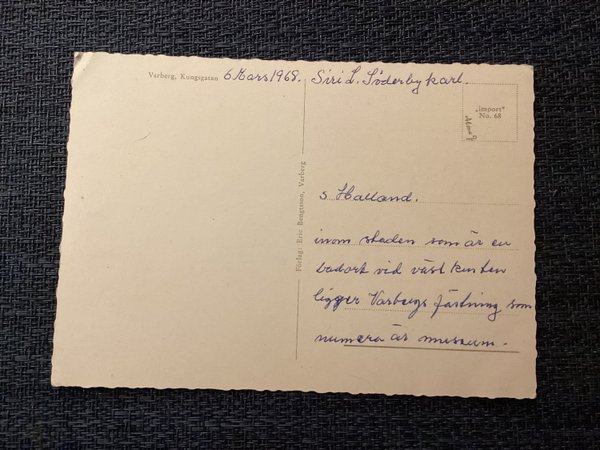 Varberg, Kungsgatan
6 Mars 1968. Siri L. Söderbykarl.
"import"
No. 68
Förlag: Eric Bengtsson, Varberg
s Halland.
inom staden som är en
badort vid västkusten
ligger Varbergs fästning som
numera är museum.